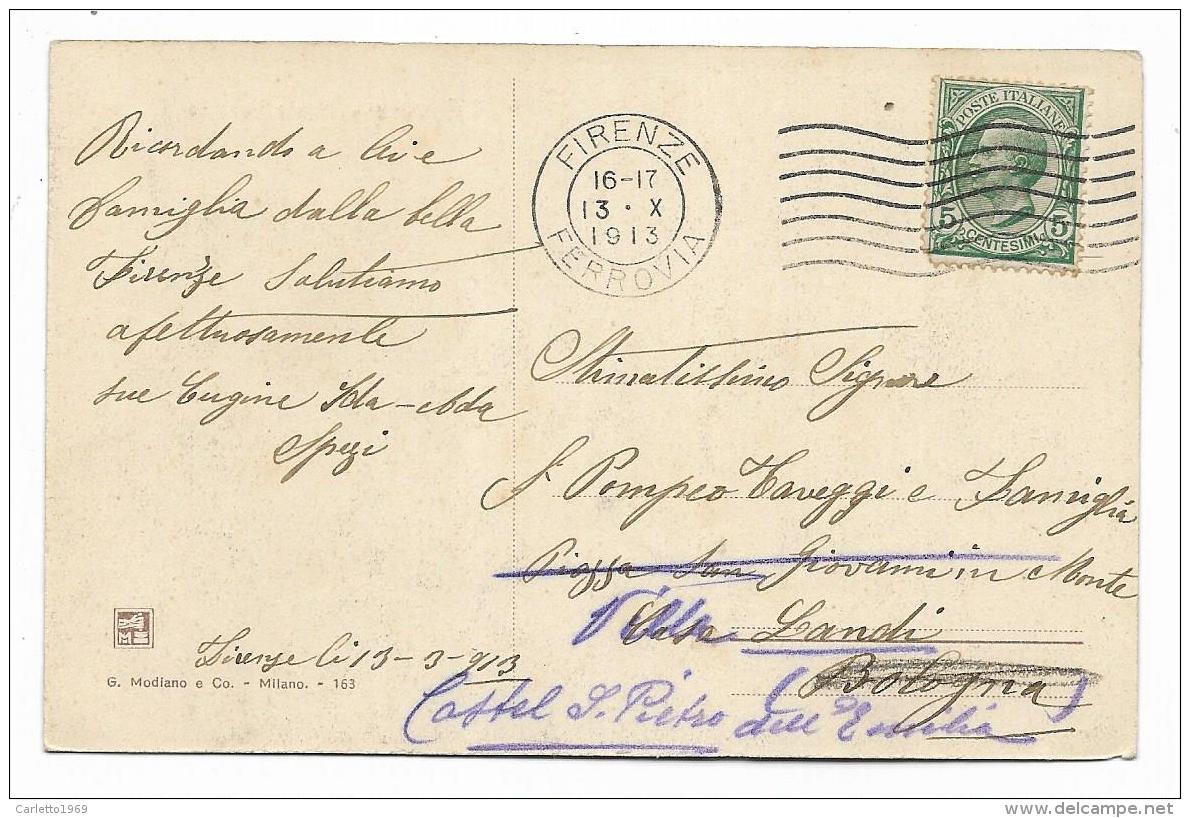 Ricordando a lei e
famiglia dalla bella
Firenze Salutiamo
afettuosamente
sue Cugine Ida - Ada
Spezi
Firenze li 13-3-913
G. Modiano e Co. - Milano. - 163
FIRENZE
16-17
13 · X
1913
FERROVIA
POSTE ITALIANE
5 CENTESIMI 5
Stimatissimo Signore
S. Pompeo Taveggi e Famiglia
Piazza San Giovanni in Monte
Villa Casa Landi
Bologna
Castel S. Pietro (dell'Emilia)
Carletto1969
delcampe.net